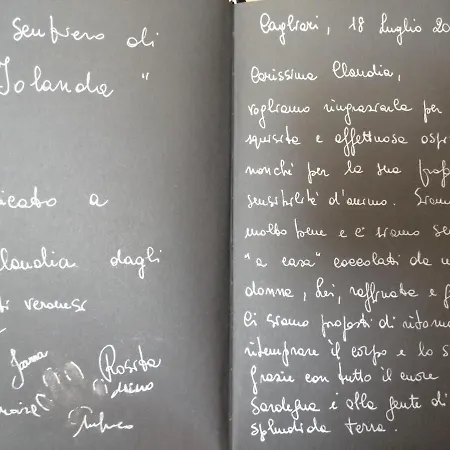 sentiero di
Jolanda "
dicato a
Claudia dagli
ti veronesi
Rosita
Cagliari, 18 Luglio 20
Carissima Claudia,
vogliamo ringraziarla per
squisita e affettuosa osp
nonché per la sua prof
sensibilità d'animo. Siamo
molto bene e ci siamo se
"a casa" coccolati da u
donna, Lei, raffinata e
Ci siamo proposti di ritorna
ritemprare il corpo e lo s
Grazie con tutto il cuore
Sardegna e alla gente di
splendida terra.